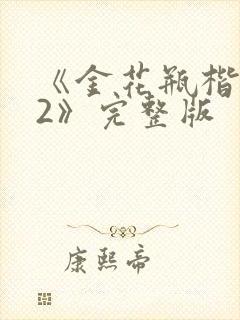 《金花瓶楷
2》完整版
康熙帝